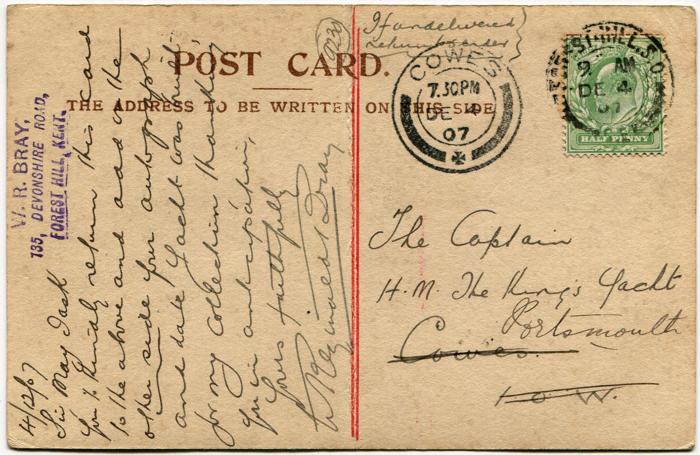 POST CARD.
THE ADDRESS TO BE WRITTEN ON THIS SIDE
W. R. BRAY,
135, DEVONSHIRE ROAD,
FOREST HILL, KENT.
4/12/07
Sir May I ask
you to kindly return this card
to the above and add on the
other side your autograph
and date Yacht was built
for my collection thanking
you in anticipation,
Yours faithfully
W Reginald Bray
COWES
7.30PM
DE 4
07
FOREST HILL. S.O.
9 AM
DE 4
07
HALF PENNY
The Captain
H.M. The King's Yacht
Portsmouth
Cowes.
I.O.W.